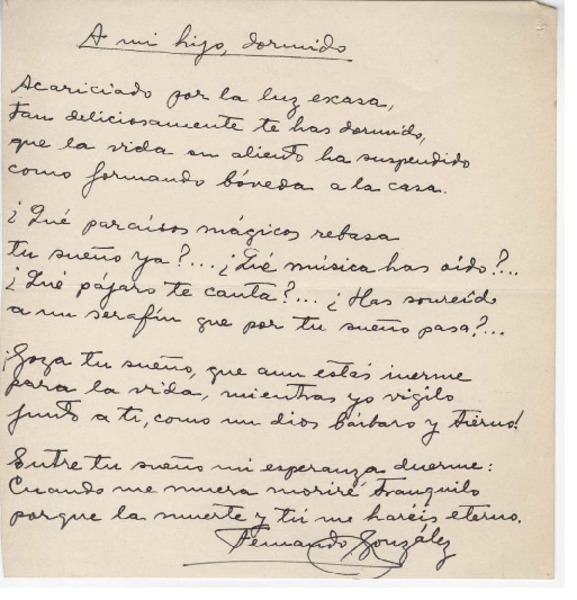 A mi hijo, dormido
Acariciado por la luz escasa,
tan deliciosamente te has dormido,
que la vida su aliento ha suspendido
como formando bóveda a la casa.
¿Qué paraísos mágicos rebasa
tu sueño ya?... ¿Qué música has oído?...
¿Qué pájaro te canta?... ¿Has sonreído
a un serafín que por tu sueño pasa?...
¡Goza tu sueño, que aun estás inerme
para la vida, mientras yo vigilo
junto a ti, como un dios bárbaro y tierno!
Entre tu sueño mi esperanza duerme:
Cuando me muera moriré tranquilo
porque la muerte y tú me haréis eterno.
Fernando González